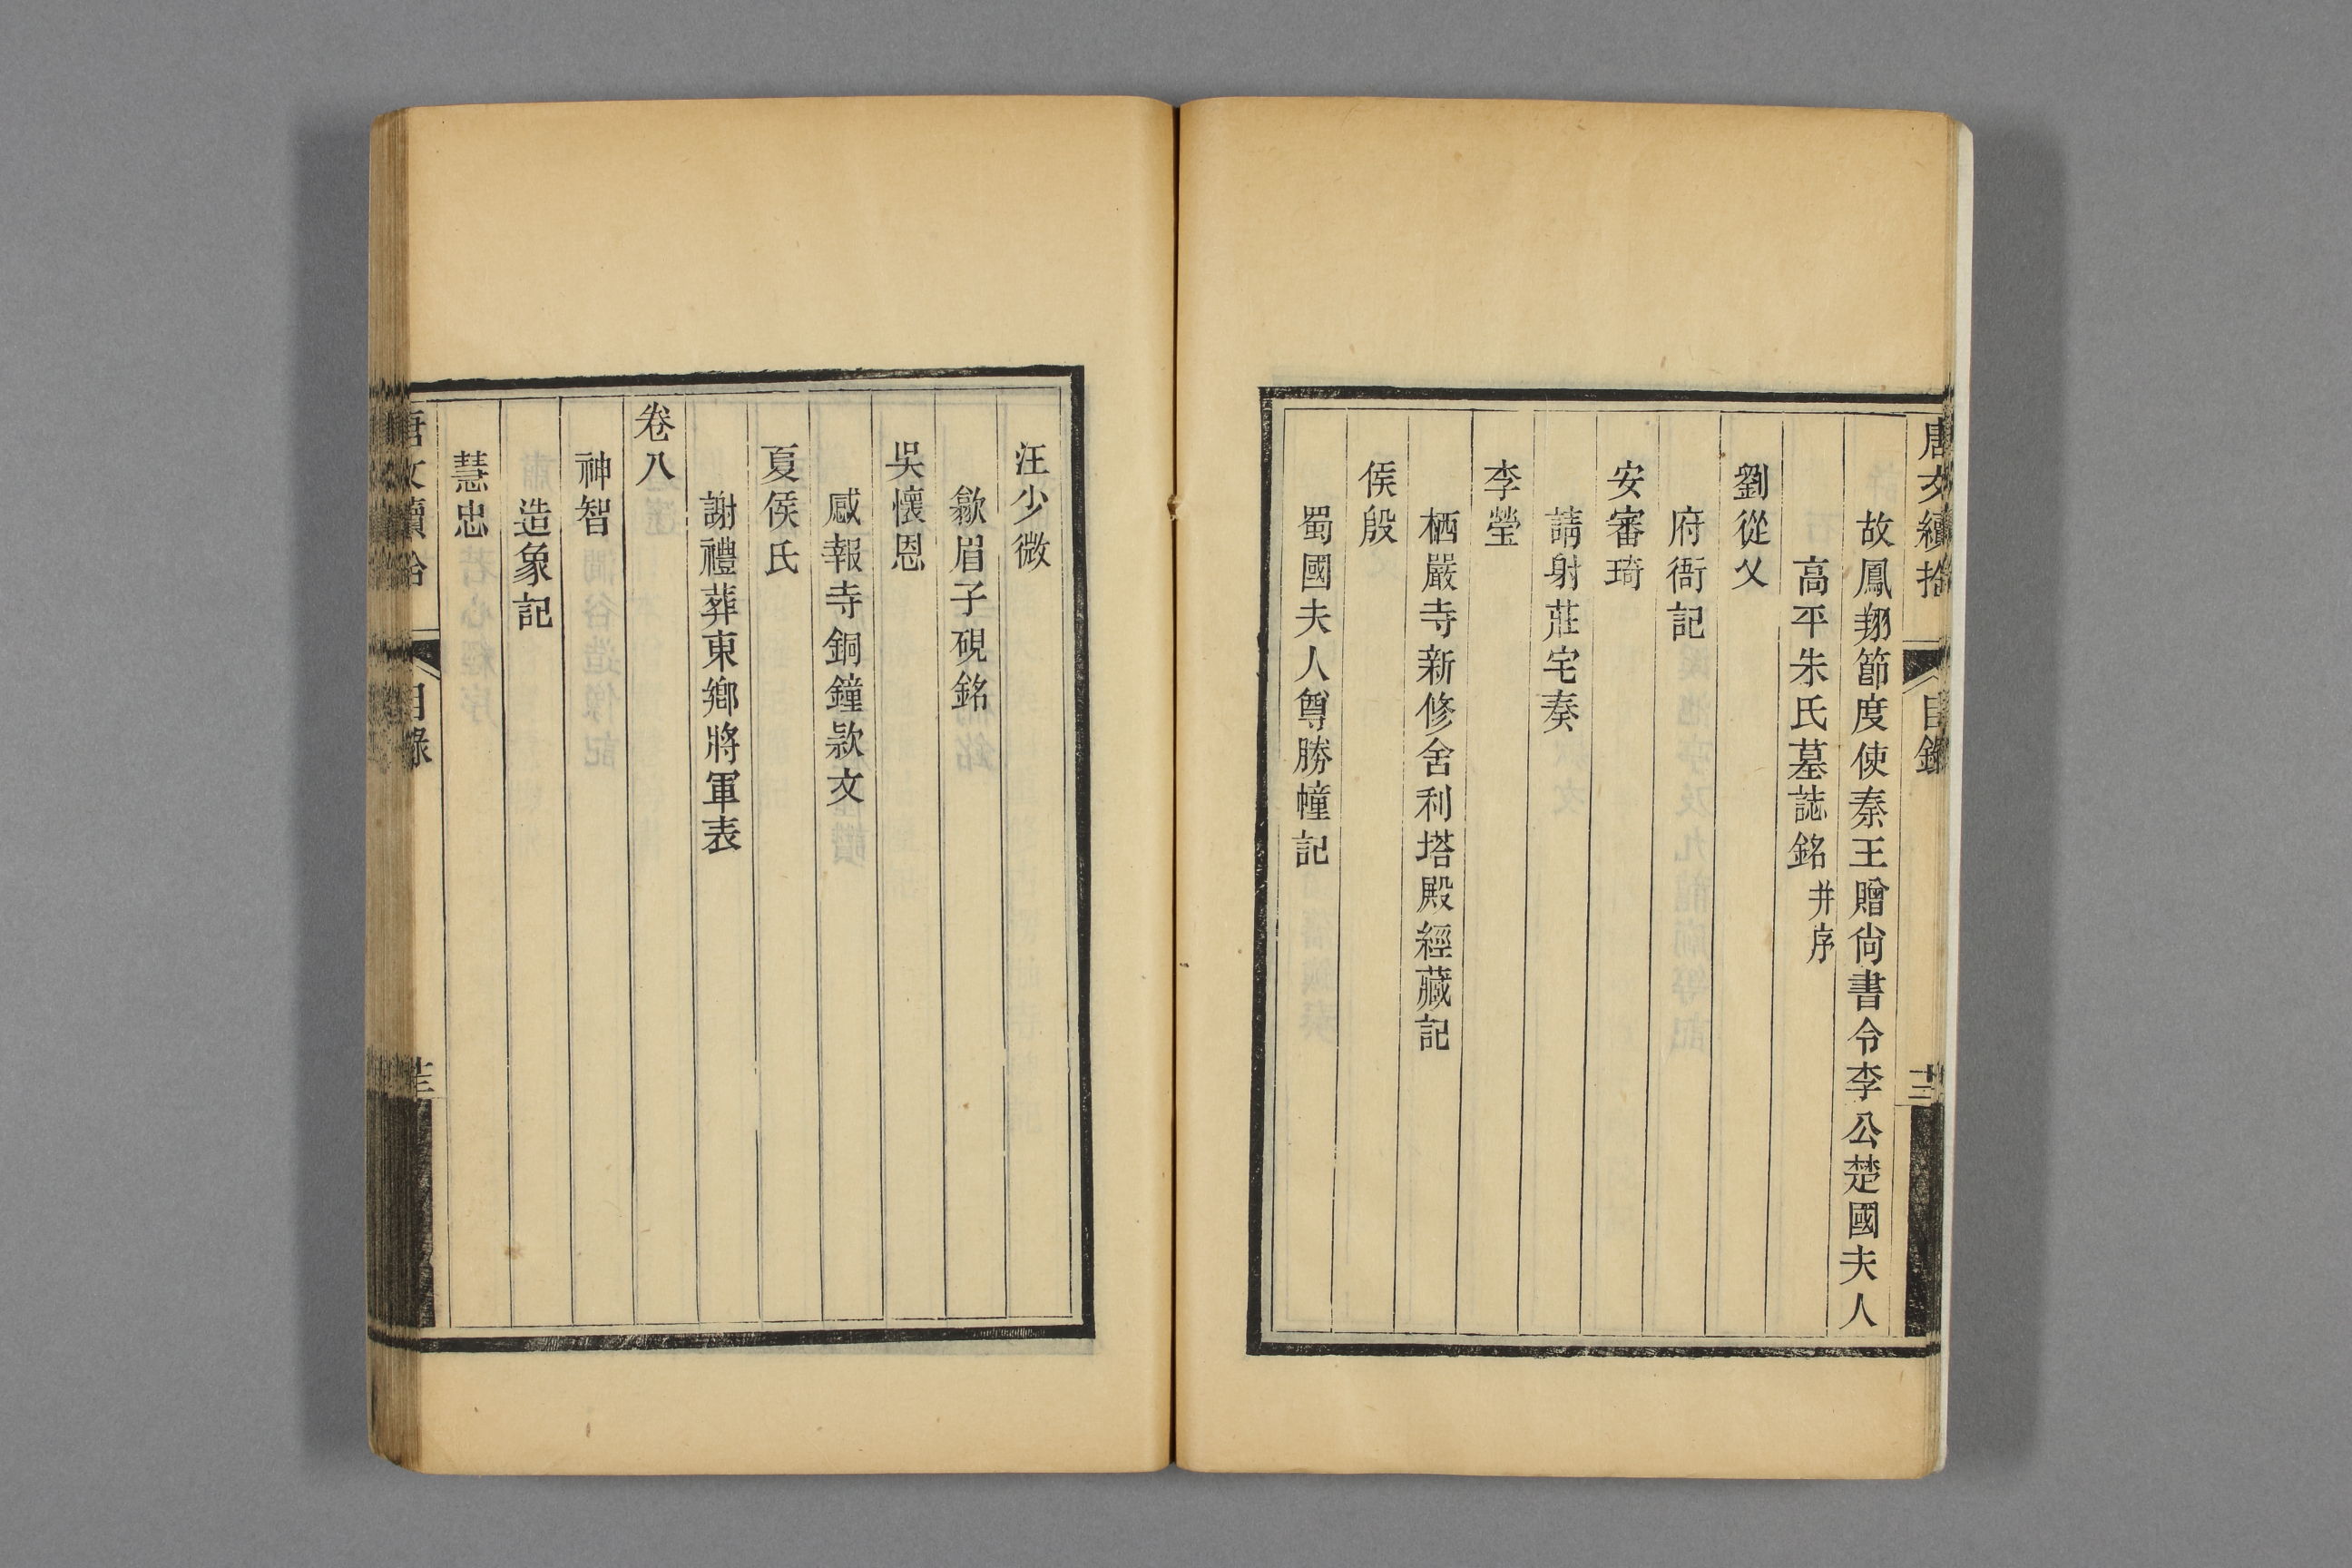 唐文續拾 目錄 十二
故鳳翔節度使秦王贈尙書令李公楚國夫人
高平朱氏墓誌銘 并序
劉從乂
府衙記
安審琦
請射莊宅奏
李瑩
栖嚴寺新修舍利塔殿經藏記
侯殷
蜀國夫人尊勝幢記
汪少微
歙眉子硯銘
吳懷恩
感報寺銅鐘款文
夏侯氏
謝禮葬東鄉將軍表
卷八
神智
造象記
慧忠
唐文續拾 目錄